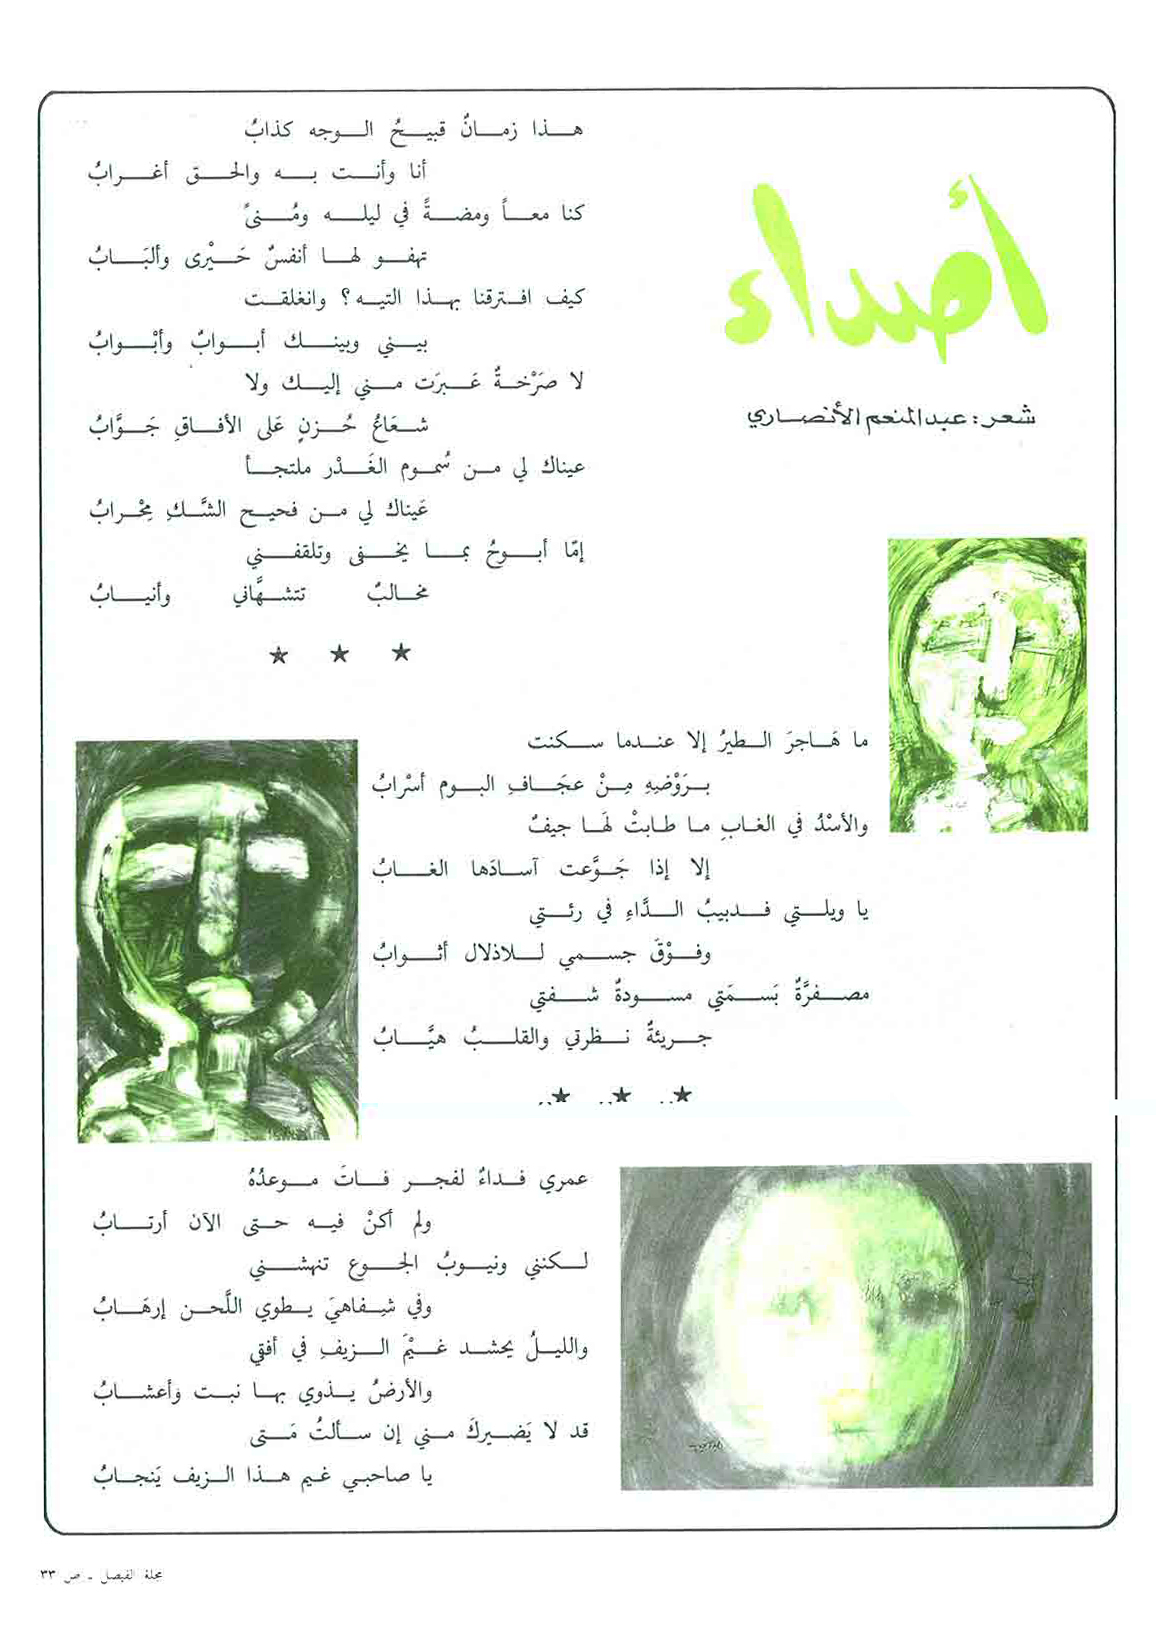 أصداء
شعر: عبدالمنعم الأنصاري
هذا زمانٌ قبيحُ الوجه كذابُ
أنا وأنت به والحق أغرابُ
كنا معاً ومضةً في ليله ومُنىً
تهفو لها أنفسٌ حَيْرى وألبَابُ
كيف افترقنا بهذا التيه؟ وانغلقت
بيني وبينك أبوابٌ وأبْوابُ
لا صَرْخةٌ عَبرَت مني إليك ولا
شعَاعُ حُزنٍ عَلى الأفاقِ جَوَّابُ
عيناك لي من سُموم الغَدْر ملتجأ
عَيناك لي من فحيح الشَّكِ مِحْرابُ
إمّا أبوحُ بما يخفى وتلقفني
مخالبٌ تتشهَّاني وأنيابُ
★ ★ ★
ما هَاجرَ الطيرُ إلا عندما سكنت
بروْضِهِ مِنْ عجَافِ البوم أسْرابُ
والأسْدُ في الغابِ ما طابتْ لهَا جيفٌ
إلا إذا جَوَّعت آسادَها الغابُ
يا ويلتي فدبيبُ الدَّاءِ في رئتي
وفوْقَ جسمي للاذلال أثوابُ
مصفرَّةٌ بَسمَتي مسودةٌ شفتي
جريئةٌ نظرتي والقلبُ هيَّابُ
★ ★ ★
عمري فداءٌ لفجر فاتَ موعدُهُ
ولم أكنْ فيه حتى الآن أرتابُ
لكنني ونيوبُ الجوع تنهشني
وفي شِفاهيَ يطوي اللَّحن إرهَابُ
والليلُ يحشد غيْمَ الزيفِ في أفقي
والأرضُ يذوي بها نبت وأعشابُ
قد لا يَضيركَ مني إن سألتُ مَتى
يا صاحبي غيم هذا الزيف يَنجابُ
مجلة الفيصل - ص ٣٣